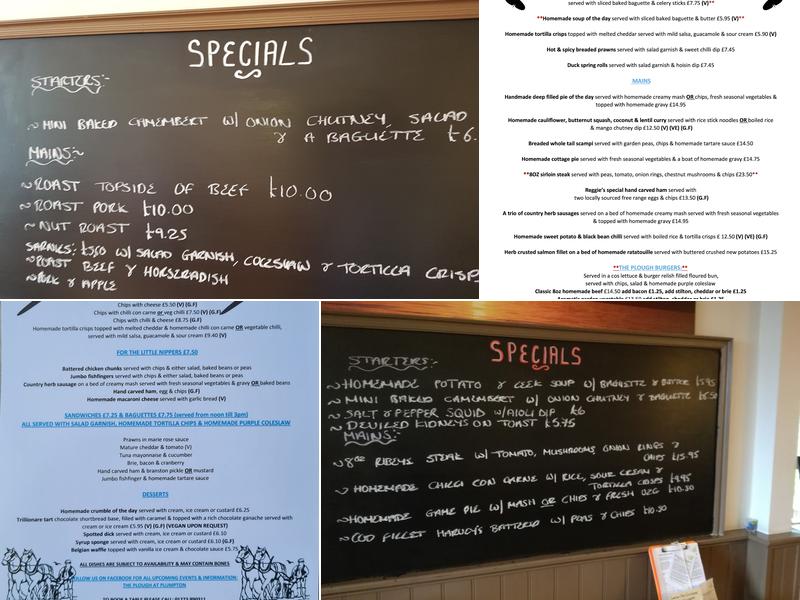 SPECIALS
STARTERS:-
~ MINI BAKED CAMEMBERT W/ ONION CHUTNEY, SALAD
& A BAGUETTE £6.
MAINS:~
~ ROAST TOPSIDE OF BEEF £10.00
~ ROAST PORK £10.00
~ NUT ROAST £9.25
SARNIES: W/ SALAD GARNISH, COLESLAW & TORTILLA CRISPS
~ ROAST BEEF & HORSERADISH
~ PORK & APPLE
served with sliced baked baguette & celery sticks £7.75 (V)**
**Homemade soup of the day served with sliced baked baguette & butter £5.95 (V)**
Homemade tortilla crisps topped with melted cheddar served with mild salsa, guacamole & sour cream £5.90 (V)
Hot & spicy breaded prawns served with salad garnish & sweet chilli dip £7.45
Duck spring rolls served with salad garnish & hoisin dip £7.45
MAINS
Handmade deep filled pie of the day served with homemade creamy mash OR chips, fresh seasonal vegetables &
topped with homemade gravy £14.95
Homemade cauliflower, butternut squash, coconut & lentil curry served with rice stick noodles OR boiled rice
& mango chutney dip £12.50 (V) (VE) (G.F)
Breaded whole tail scampi served with garden peas, chips & homemade tartare sauce £14.50
Homemade cottage pie served with fresh seasonal vegetables & a boat of homemade gravy £14.75
**8OZ sirloin steak served with peas, tomato, onion rings, chestnut mushrooms & chips £23.50**
Reggie's special hand carved ham served with
two locally sourced free range eggs & chips £13.50 (G.F)
A trio of country herb sausages served on a bed of homemade creamy mash served with fresh seasonal vegetables
& topped with homemade gravy £14.95
Homemade sweet potato & black bean chilli served with boiled rice & tortilla crisps £ 12.50 (V) (VE) (G.F)
Herb crusted salmon fillet on a bed of homemade ratatouille served with buttered crushed new potatoes £15.25
**THE PLOUGH BURGERS:**
Served in a cos lettuce & burger relish filled floured bun,
served with chips, salad & homemade purple coleslaw
Classic 8oz homemade beef £14.50 add bacon £1.25, add stilton, cheddar or brie £1.25
Chips with cheese £5.50 (V) (G.F)
Chips with chilli con carne or veg chilli £7.50 (V) (G.F)
Chips with chilli & cheese £8.75 (G.F)
Homemade tortilla crisps topped with melted cheddar & homemade chilli con carne OR vegetable chilli,
served with mild salsa, guacamole & sour cream £9.40 (V)
FOR THE LITTLE NIPPERS £7.50
Battered chicken chunks served with chips & either salad, baked beans or peas
Jumbo fishfingers served with chips & either salad, baked beans or peas
Country herb sausage on a bed of creamy mash served with fresh seasonal vegetables & gravy OR baked beans
Hand carved ham, egg & chips (G.F)
Homemade macaroni cheese served with garlic bread (V)
SANDWICHES £7.25 & BAGUETTES £7.75 (served from noon till 3pm)
ALL SERVED WITH SALAD GARNISH, HOMEMADE TORTILLA CHIPS & HOMEMADE PURPLE COLESLAW
Prawns in marie rose sauce
Mature cheddar & tomato (V)
Tuna mayonnaise & cucumber
Brie, bacon & cranberry
Hand carved ham & branston pickle OR mustard
Jumbo fishfinger & homemade tartare sauce
DESSERTS
Homemade crumble of the day served with cream, ice cream or custard £6.25
Trillionaire tart chocolate shortbread base, filled with caramel & topped with a rich chocolate ganache served with
cream or ice cream £5.95 (V) (G.F) (VEGAN UPON REQUEST)
Spotted dick served with cream, ice cream or custard £6.10
Syrup sponge served with cream, ice cream or custard £6.10 (G.F)
Belgian waffle topped with vanilla ice cream & chocolate sauce £5.75
ALL DISHES ARE SUBJECT TO AVAILABILITY & MAY CONTAIN BONES
FOLLOW US ON FACEBOOK FOR ALL UPCOMING EVENTS & INFORMATION:
THE PLOUGH AT PLUMPTON
TO BOOK A TABLE PLEASE CALL: 01273 890311
SPECIALS
STARTERS:-
~ HOMEMADE POTATO & LEEK SOUP W/ BAGUETTE & BUTTER £5.95
~ MINI BAKED CAMEMBERT W/ ONION CHUTNEY & BAGUETTE £6.50
~ SALT & PEPPER SQUID W/ AIOLI DIP £6
~ DEVILED KIDNEYS ON TOAST £5.75
MAINS:-
~ 8oz RIBEYE STEAK W/ TOMATO, MUSHROOMS, ONION RINGS &
CHIPS £15.95
~ HOMEMADE CHILLI CON CARNE W/ RICE, SOUR CREAM &
TORTILLA CRISPS £9.95
~ HOMEMADE GAME PIE W/ MASH OR CHIPS & FRESH VEG £10.50
~ COD FILLET HARVEY'S BATTERED W/ PEAS & CHIPS £10.50